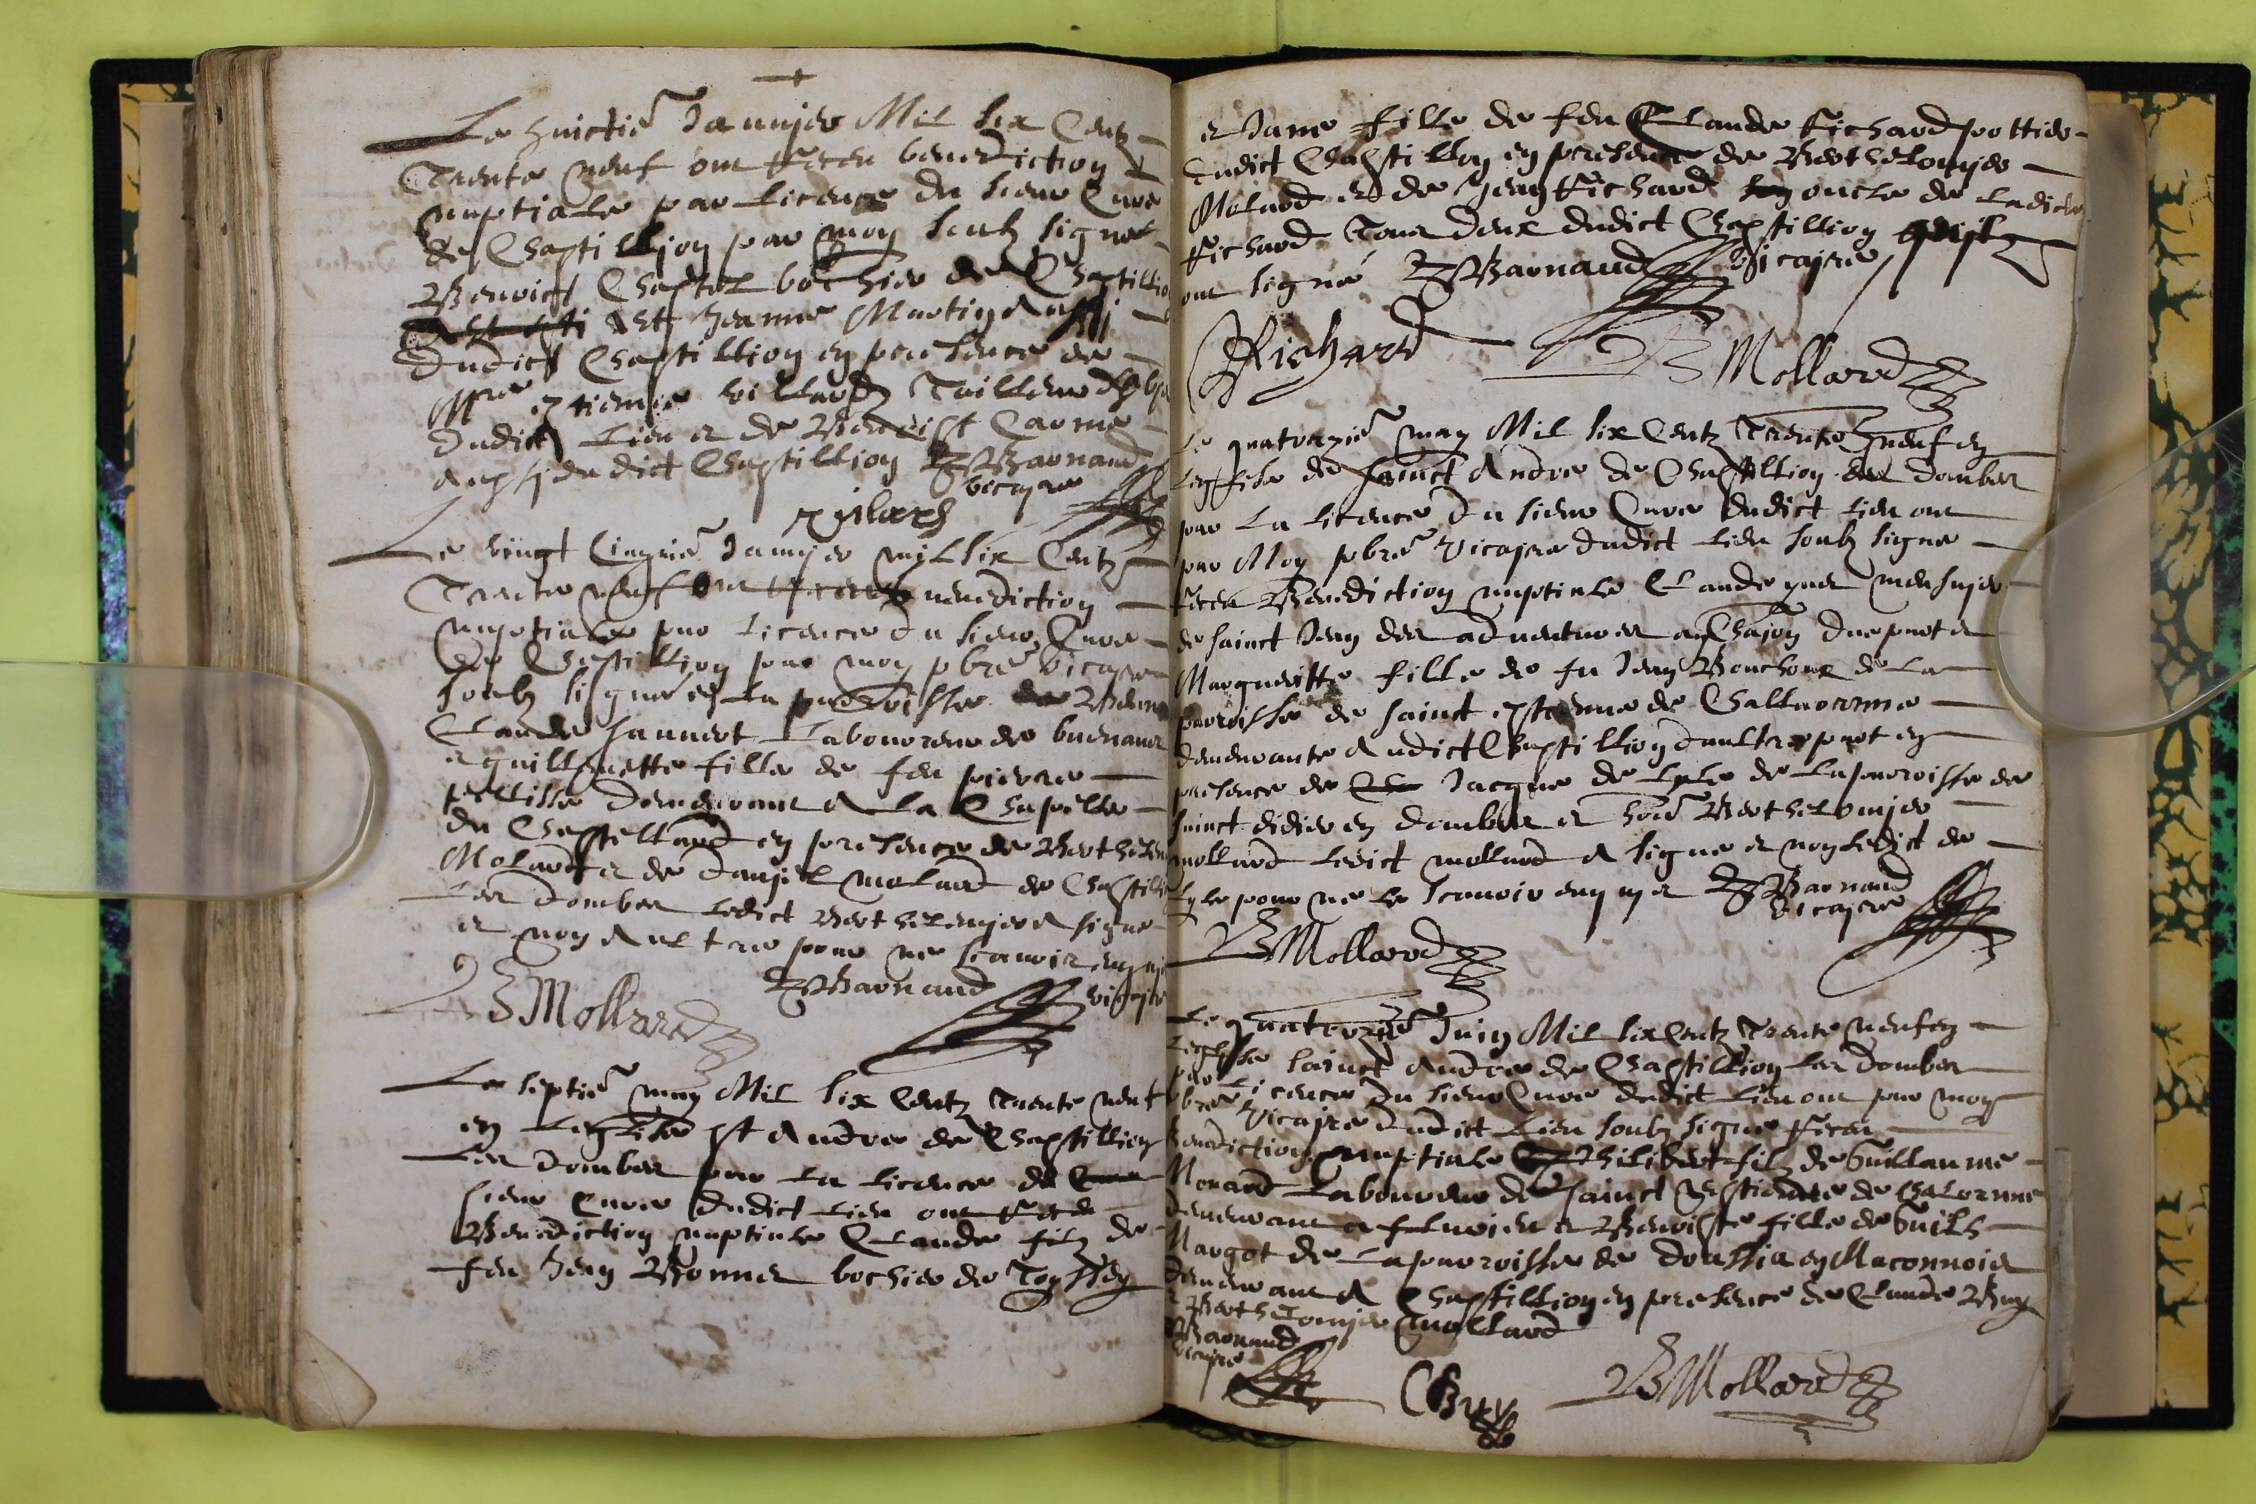 Le huictie Jannjer Mil six Centz
Trente neuf ont receu benediction
nuptiale par licence du sieur Cure
de Chastillion par moy soubz signe
Benoict Chastel bochier de Chastillio
et Jeanne Martin Aussi
dudict Chastillion en presence de
villard Tailleur
dudict Lieu et de Benoist Carme
aussi du dict Chastillion Barnaud
vicayre
Vilard
Le vingt cinquie Jannjer mil six Centz
Trente neuf ont receu benediction
nuptiale par licence du sieur Cure
de Chastillion par moy pbre vicayre
soubz signe en la paroisse de
Claude Jannert Laboureur de buenanc
et guillemette fille de feu pierre
pellisse demeurant A La Chapelle
du Chastellard en presence de Berthelem
Molard et de danjel molard de Chastillio
Les dombes ledict Berthelemjer A signe
et non Aultre pour ne scavoir enqujs
Barnaud vicayre
B Mollard
Le septie may Mil six Centz Trente neuf
en Leglise st Andre de Chastillion
Les dombes par la licence du
sieur Cure dudict Lieu ont receu
Benediction nuptiale Claude filz de
feu Jean Bonnet bochier de Toyssey
et Jame fille de feu Claude Richard pottier
dudict Chastillion en presence de Berthelomjer
Molard et de Jean Richard oncle de Ladicte
Richard Tous deux dudict Chastillion
ont signe Barnaud vicayre
Richard B Mollard
Le quatorzie may Mil six Centz Trente neuf en
Leglise de sainct Andre de Chastillion dombes
par La licence du sieur Cure dudict Lieu ont
par Moy pbre vicayre dudict Lieu soubz signe
receu Benediction nuptiale Claude munsujer
de sainct Jean des adventures dune part et
Margueritte fille de fu Jean Bouchoux de La
paroisse de sainct estienne de Challaronne
demeurante Audict Chastillion daultre part en
presence de Jacque de Lyle de La paroisse de
sainct didier en dombes et hon Berthelomjer
mollard ledict mollard A signe et non ledict de
Lyle pour ne le scavoir enqujs Barnaud
vicayre
B Mollard
Le quatorzie Juin Mil six Centz Trente neuf en
Leglise sainct Andre de Chastillion Les dombes
par Licence du sieur Cure dudict Lieu ont par moy
pbre vicayre dudict Lieu soubz signe receu
Benediction nuptiale Philibert filz de Guillaume
Monard Laboureur de sainct Estienne de Chalaronne
demeurant a flurieu et Benoiste fille de Guille
Margot de La paroisse de doussia en Maconnois
demeurant A Chastillion en presence de Claude Buy
et Berthelomjer mollard
Barnaud
vicayre
C Buy B Mollard